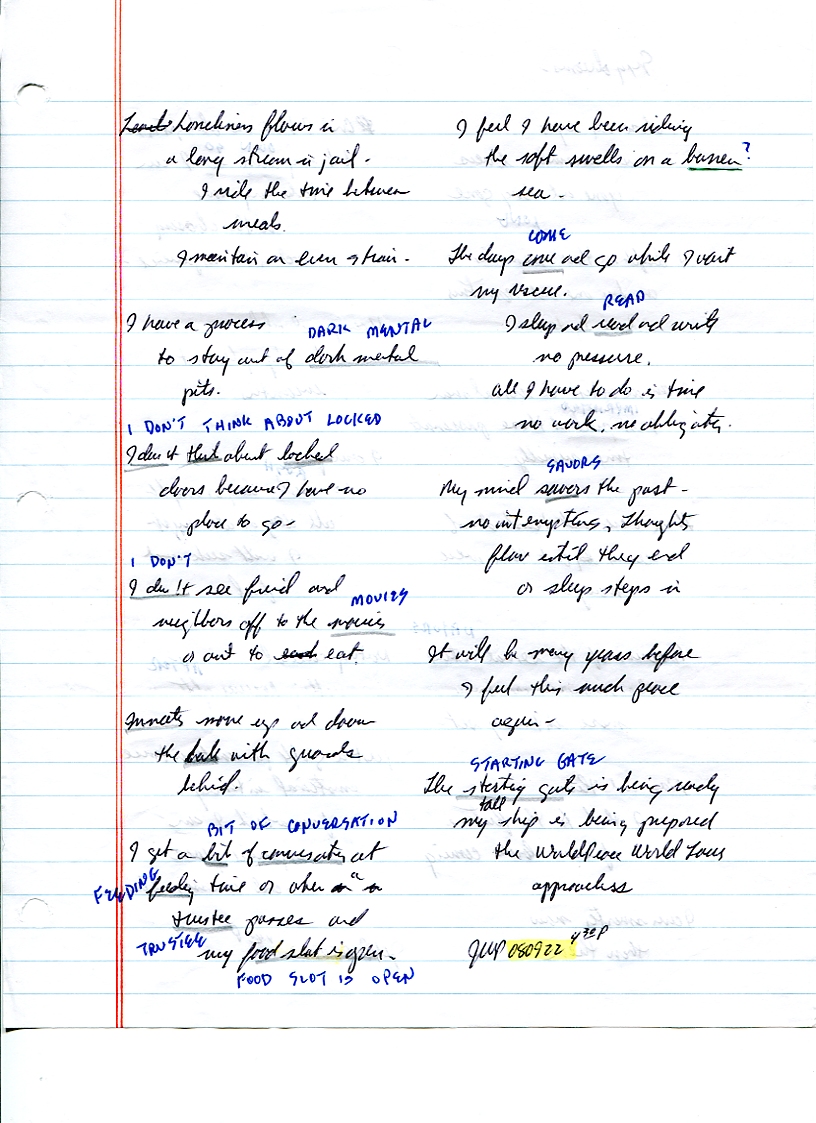 Loneliness flows in
a long stream in jail.
I ride the time between
meals.
I maintain an even strain.
I have a process
DARK MENTAL
to stay out of dark mental
pits.
I DON'T THINK ABOUT LOCKED
I don't think about locked
doors because I have no
place to go-
I DON'T
I don't see friend and
MOVIES
neighbors off to the movies
or out to eat.
Inmates move up and down
the hall with guards
behind.
BIT OF CONVERSATION
I get a bit of conversation at
FEEDING
feeding time or when a
trustee passes and
TRUSTEE
my food slot is open.
FOOD SLOT IS OPEN
I feel I have been riding
the soft swells on a barren?
sea-
COME
The days come and go while I wait
my rescue.
READ
I sleep and read and write
no pressure.
all I have to do is time
no work, no obligations.
SAVORS
My mind savors the past-
no interruptions, thoughts
flow until they end
or sleep steps in
It will be many years before
I feel this much peace
again-
STARTING GATE
The starting gate is being ready
tall
my ship is being prepared
the WorldPeace World Tour
approaches
JWP 080922 430P